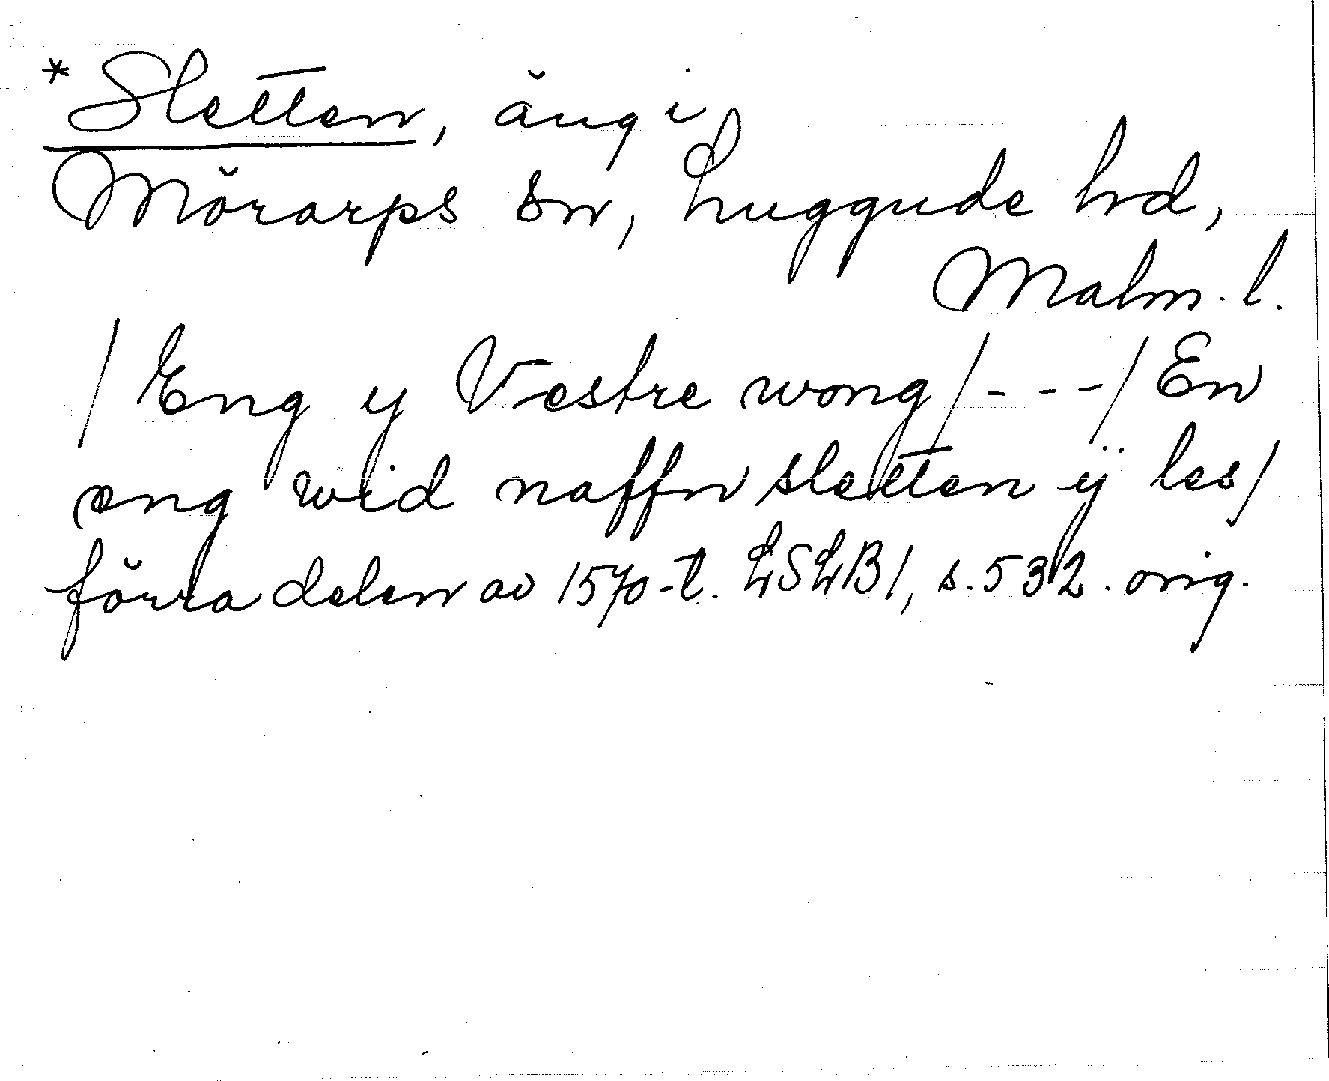 *Sletten, äng i
Mörarps sn, Luggude hd,
Malm. l.
/ Eng y Vestre wong / - - - / En
eng wid naffn sletten ÿ les /
förra delen av 1570-t. LSLB 1, s. 532. orig.